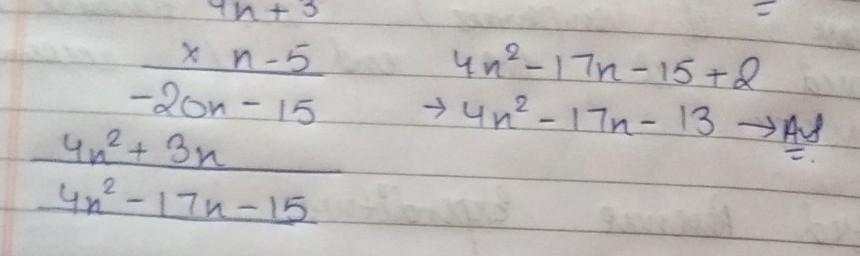 4n + 3
× n - 5
-20n - 15
4n² + 3n
4n² - 17n - 15
4n² - 17n - 15 + 2
→ 4n² - 17n - 13 → Ans
=